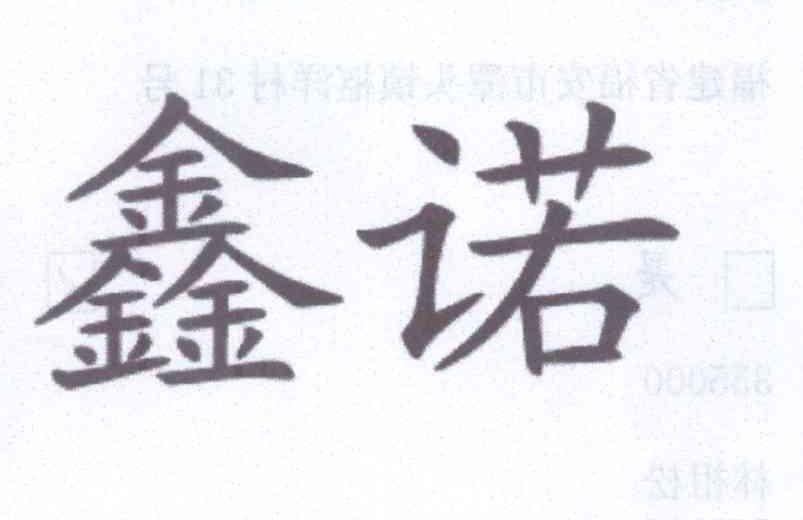 福建省福安市潭头镇枢洋村 31 号
鑫诺
是
355000
林相松